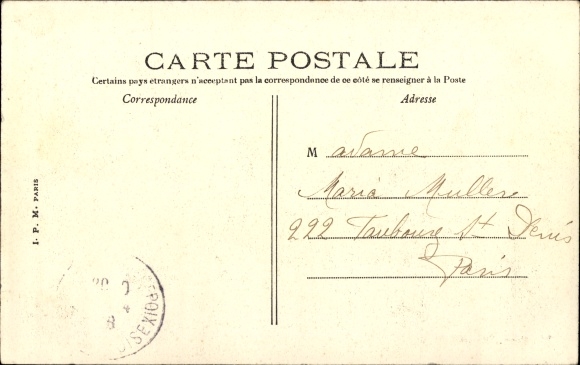 CARTE POSTALE
Certains pays etrangers n'acceptent pas la correspondance de ce côté se renseigner à la Poste
Correspondance
Adresse
Madame
Maria Muller
222 Faubourg St Denis
Paris
I. P. M. PARIS